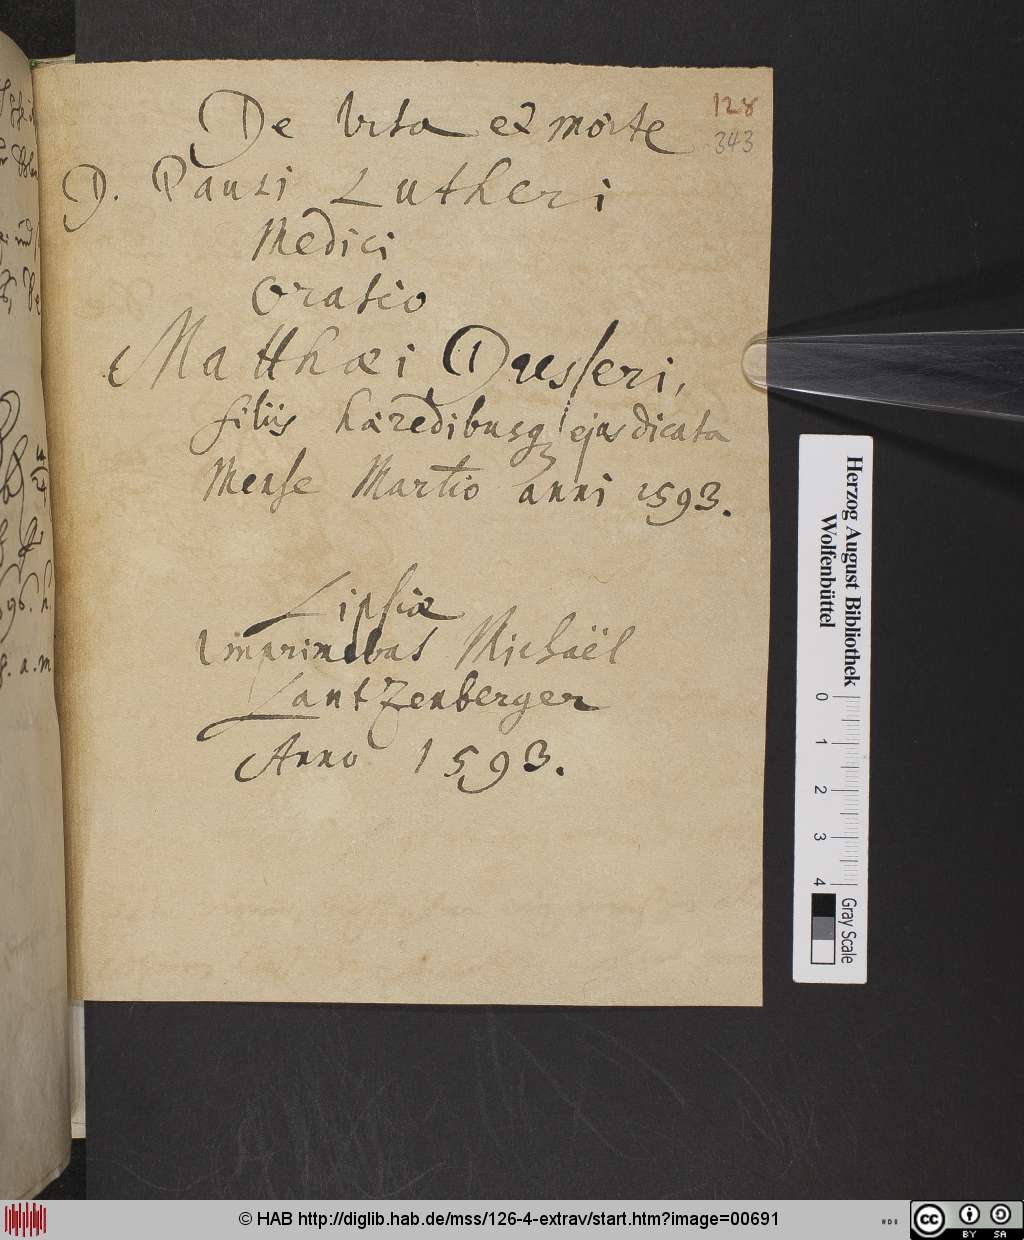 128
343
De Vita et morte
D. Pauli Lutheri
Medici
Oratio
Matthæi Dresseri,
filiis hæredibusq; ejus dicata
Mense Martio anni 1593.
Lipsiæ
Imprimebat Michaël
Lantzenberger
Anno 1593.
Herzog August Bibliothek
Wolfenbüttel
0 1 2 3 4
Gray Scale
© HAB http://diglib.hab.de/mss/126-4-extrav/start.htm?image=00691
cc BY SA